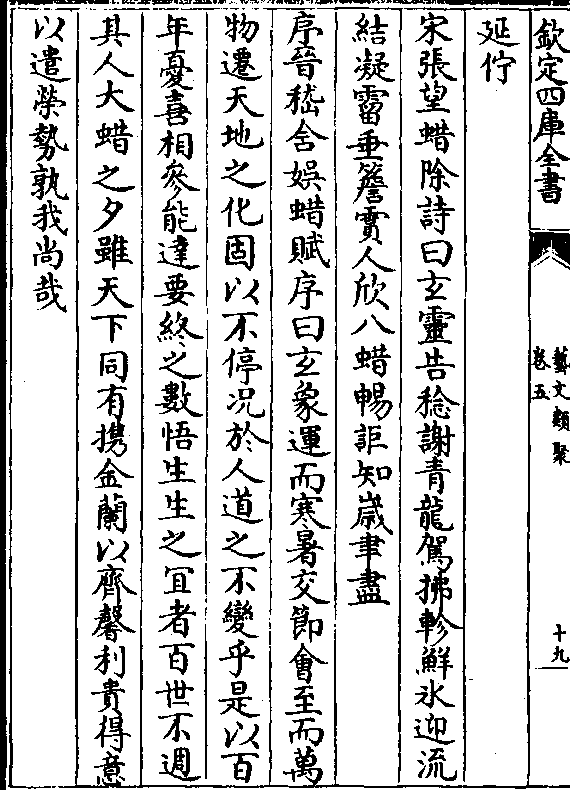 欽定四庫全書
藝文類聚
卷五
十九
延佇
宋張望蜡除詩曰玄靈告稔謝青龍駕拂軫鮮氷迎流
結凝霤垂簷實人欣八蜡暢詎知嵗聿盡
序晉嵇含娯蜡賦序曰玄象運而寒暑交節會至而萬
物遷天地之化固以不停况於人道之不變乎是以百
年憂喜相參能達要終之數悟生生之冝者百世不週
其人大蜡之夕雖天下同有携金蘭以齊馨利貴得意
以遣榮勢孰我尚哉